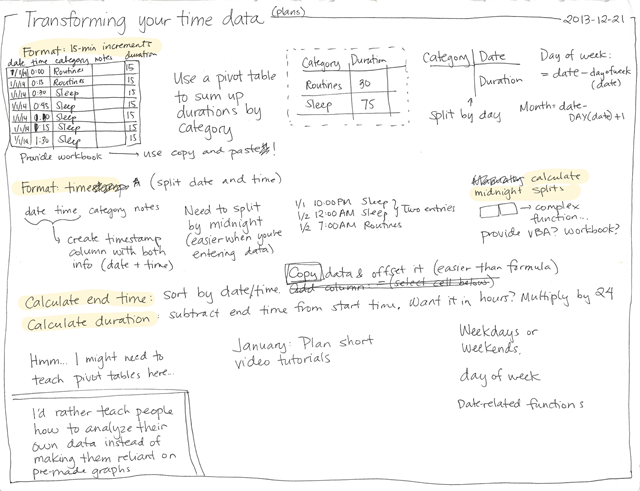 Transforming your time data (plans)
2013-12-21
Format: 15-min increments
date time category notes duration
1/1/14 0:00 Routines 15
1/1/14 0:15 Routines 15
1/1/14 0:30 Sleep 15
1/1/14 0:45 Sleep 15
1/1/14 Sleep 15
1/1/14 Sleep 15
1/1/14 1:30 Sleep 15
Provide workbook → use copy and paste!
Use a pivot table
to sum up
durations by
category
Category Duration
Routines 30
Sleep 75
Category Date
Duration
split by day
Day of week:
= date - dayofweek
(date)
Month = date -
DAY(date)+1
Format A (split date and time)
date time category notes
create timestamp
column with both
info (date + time)
Need to split
by midnight
(easier when you're
entering data)
1/1 10:00PM Sleep
1/2 12:00AM Sleep
1/2 7:00AM Routines
Two entries
calculate
midnight splits
→ complex
function...
provide VBA? Workbook?
Copy data & offset it (easier than formula)
Calculate end time: Sort by date/time. Add column = (select cell below)
Calculate duration: subtract end time from start time. Want it in hours? Multiply by 24
Hmm... I might need to
teach pivot tables here...
January: Plan short
video tutorials
Weekdays or
weekends.
day of week
Date-related functions
I'd rather teach people
how to analyze their
own data instead of
making them reliant on
pre-made graphs